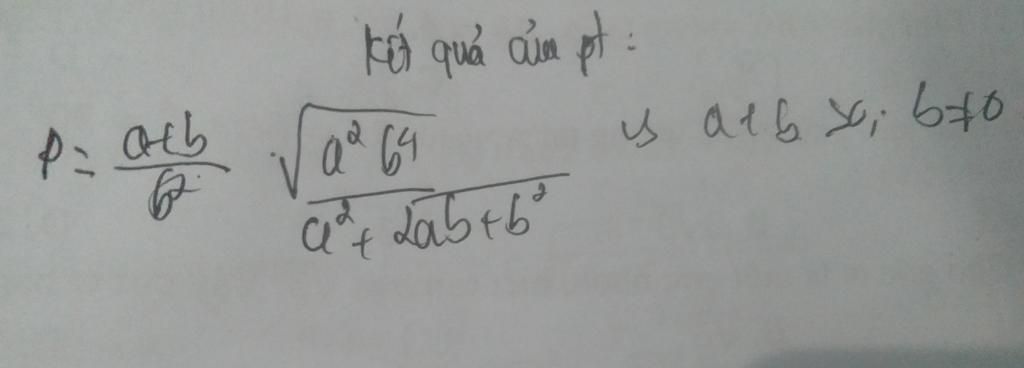 Kết quả của pt:
P = \frac{a+b}{b^2} \cdot \sqrt{\frac{a^2 b^4}{a^2 + 2ab + b^2}} a+b >0; b≠0